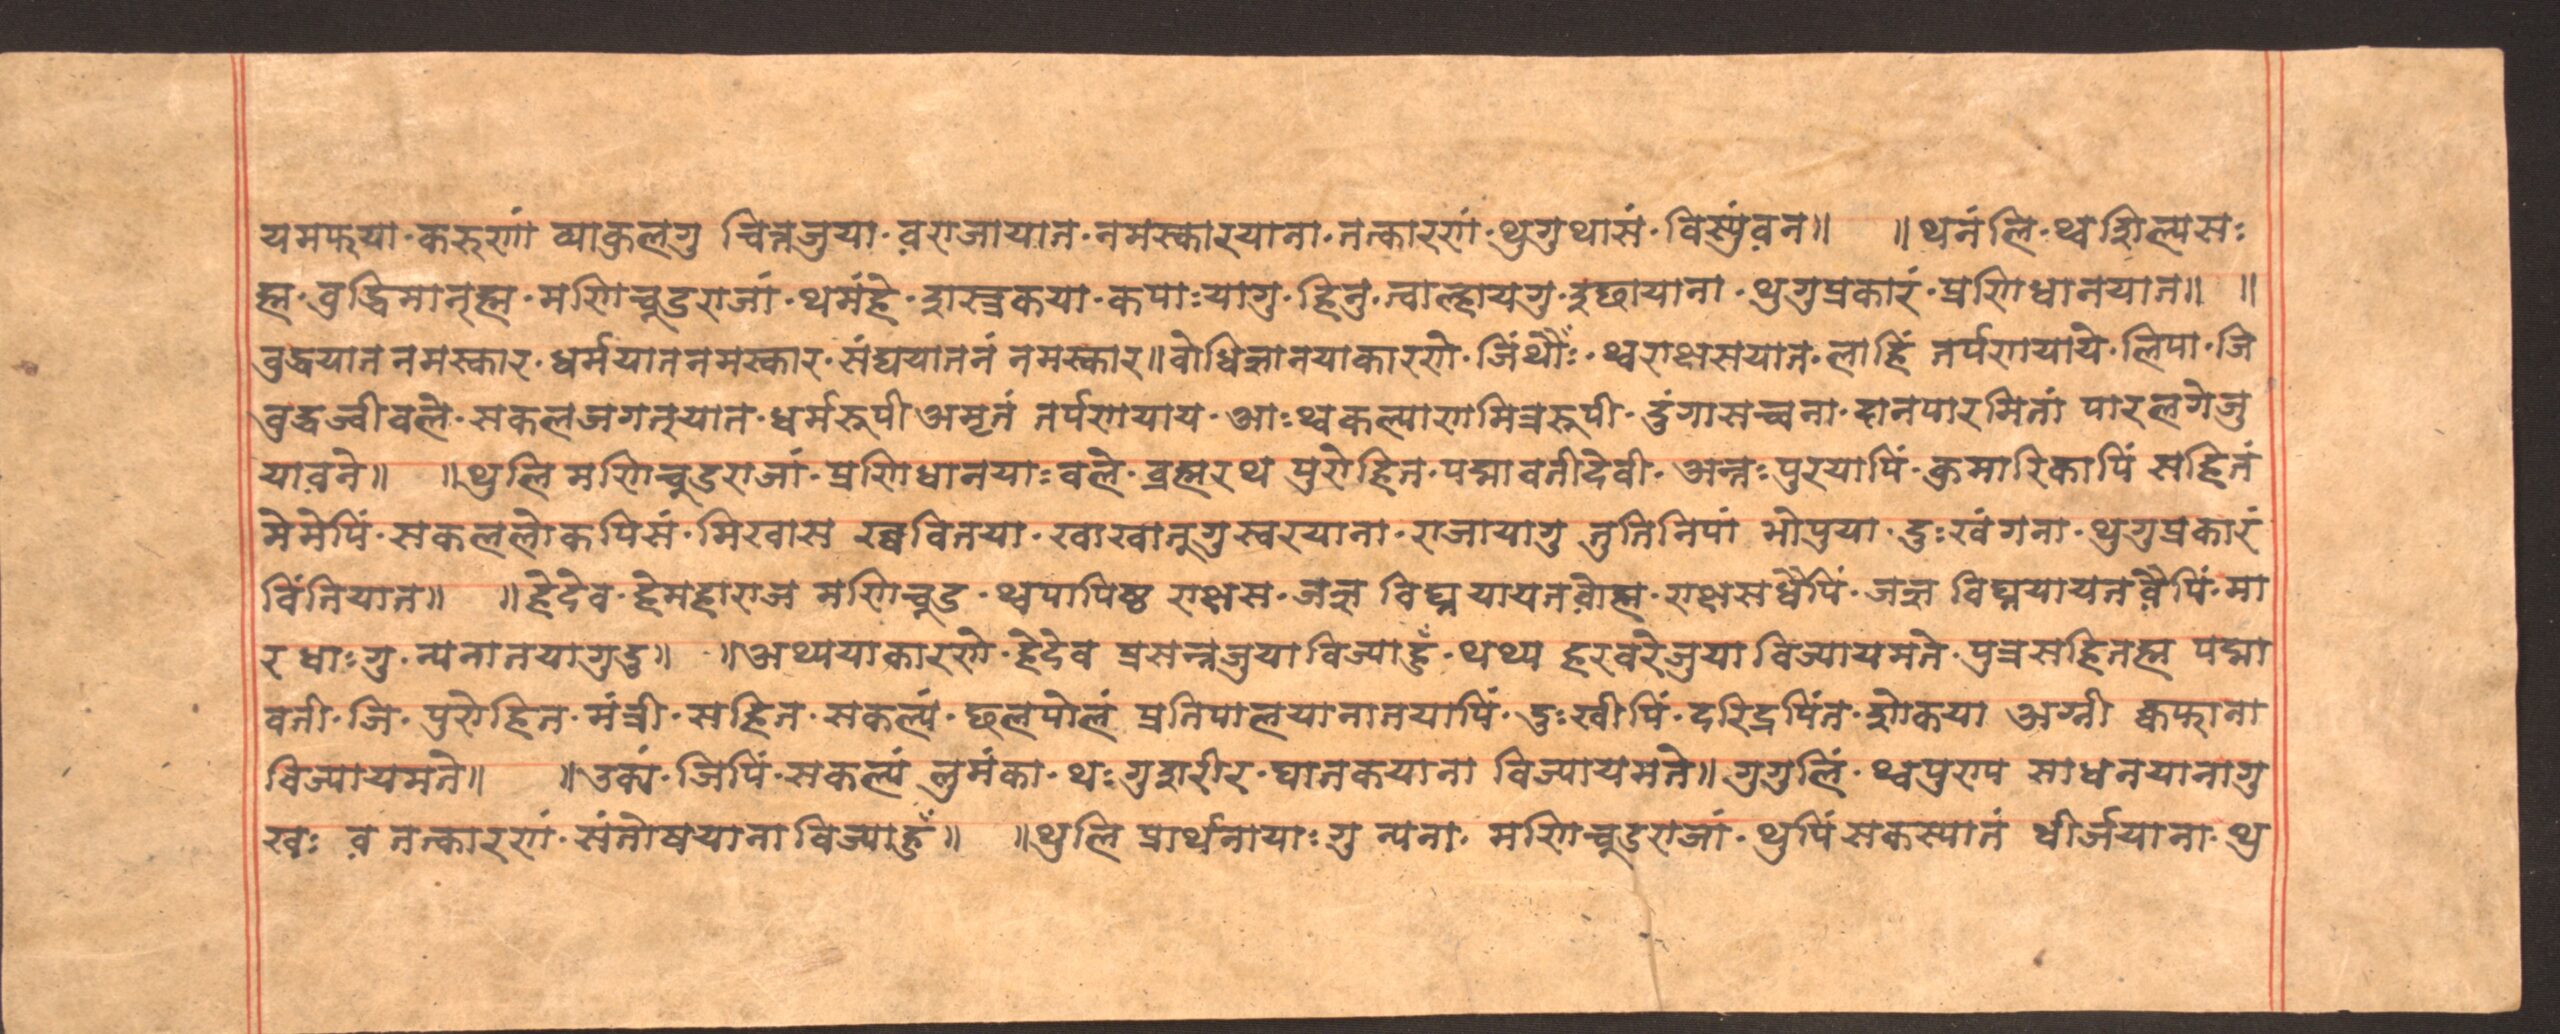 यमफया·करुणां व्याकुलगु चित्तजुया·व़राजायात·नमस्कारयाना·तत्कारणं·थुगुथासं·विस्युंव़न॥ ॥थनंलि·थ्वशिल्पसः
ह्म·वुद्धिमान्ह्म·मणिचूडराजां·थमंहे·शास्त्रकया·कपाःयागु·हितु·त्वाल्हायगु·इछायाना·थुगुप्रकारं·प्रणिधानयात॥ ॥
वुद्धयात नमस्कार·धर्मयात नमस्कार·संघयाततं नमस्कार॥वोधिज्ञानयाकारणे·जिंथौंः·थ्वराक्षसयात·लाहिं तर्पणयाये·लिपा·जि
वुद्धज्वीवले·सकलजगत्‌यात·धर्मरूपी अमृतं तर्पणयाय·आःथ्वकल्याणमित्ररूपी·दुंगासच्वना·दानपारमितां पारलगेजु
याव़ने॥ ॥थुलि मणिचूडराजां·प्रणिधानयाःवले·व्रह्मरथ पुरोहित·पद्मावतीदेवी·अन्तःपुरयापिं·कुमारिकापिं सहितं
मेमेपिं·सकललोकपिसं·मिखास खव्वितया·खाखातुगुस्वरयाना·राजायागु तुतिनिपां भोपुया·दुःखंगना·थुगुप्रकारं
विंतियात॥ ॥हेदेव·हेमहाराज मणिचूड·थ्वपापिष्ठ राक्षस·जज्ञ विघ्नयायतव़ोह्म·राक्षसधैपिं·जज्ञ विघ्नयायतव़ैपिं·मा
रधाःगु·न्यनातयागुदु॥ ॥अथ्ययाकारणे·हेदेव प्रसन्नजुयाविज्याहुँ·थथ्य हरवरेजुया विज्यायमते·पुत्रसहितह्म पद्मा
वती·जि·पुरोहित·मंत्री·सहित·सकल्यं·छलपोलं प्रतिपालयानातयापिं·दुःखीपिं·दरिद्रपिंत·शोकया अग्नी क्वफाना
विज्यायमते॥ ॥उक्यं·जिपिं·सकल्यं लुमंका·थःगुशरीर·घातकयाना विज्यायमते॥गुगुलिं·थ्वपुरुष साधनयानागु
खः व़ तत्कारणं·संतोषयाना विज्याहुँ॥ ॥थुलि प्रार्थनायाःगु न्यना·मणिचूडराजां·थुपिंसकस्यातं धीर्जयाना·थु